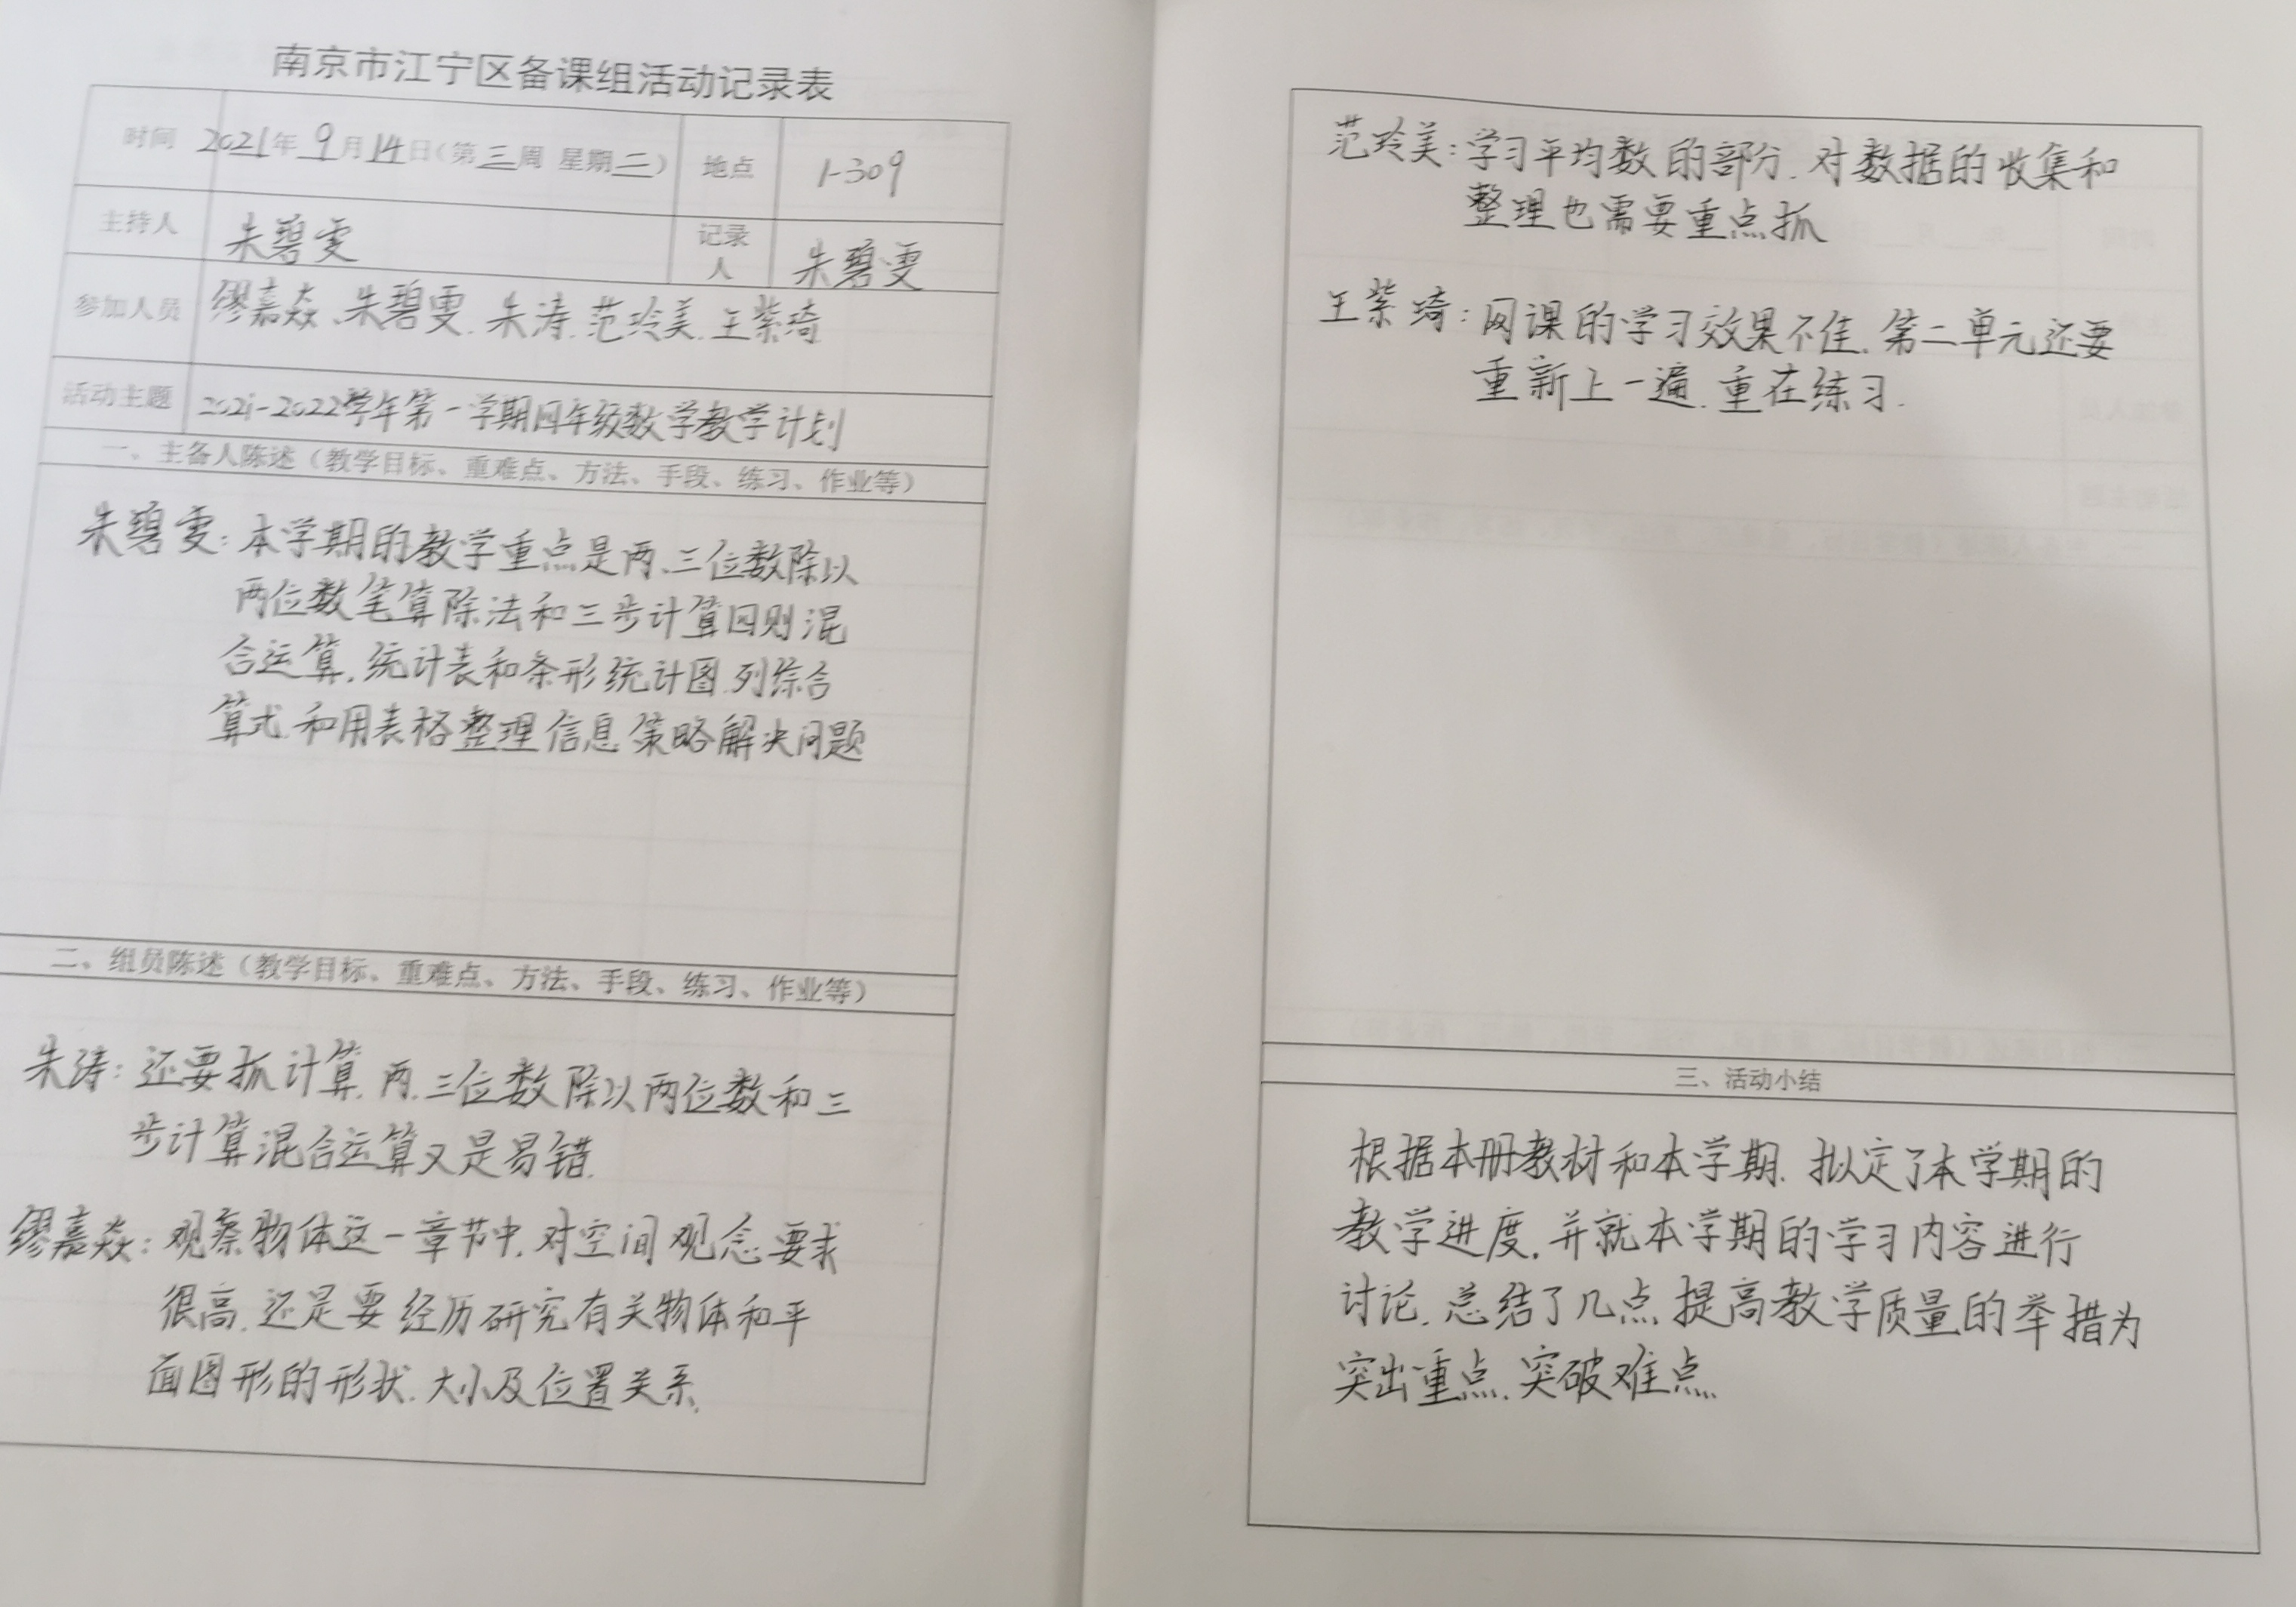 南京市江宁区备课组活动记录表
时间 2021年9月14日(第三周 星期二) 地点 1-309
主持人 朱碧雯 记录人 朱碧雯
参加人员 缪嘉焱、朱碧雯、朱涛、范玲美、王紫琦
活动主题 2021-2022学年第一学期四年级数学教学计划
一、主备人陈述（教学目标、重难点、方法、手段、练习、作业等）
朱碧雯：本学期的教学重点是两、三位数除以
两位数笔算除法和三步计算四则混
合运算，统计表和条形统计图，列综合
算式，和用表格整理信息策略解决问题
二、组员陈述（教学目标、重难点、方法、手段、练习、作业等）
朱涛：还要抓计算，两、三位数除以两位数和三
步计算混合运算又是易错.
缪嘉焱：观察物体这一章节中，对空间观念要求
很高，还是要经历研究有关物体和平
面图形的形状、大小及位置关系.
范玲美：学习平均数的部分，对数据的收集和
整理也需要重点抓
王紫琦：网课的学习效果不佳，第二单元还要
重新上一遍，重在练习.
三、活动小结
根据本册教材和本学期，拟定了本学期的
教学进度，并就本学期的学习内容进行
讨论，总结了几点提高教学质量的举措为
突出重点，突破难点